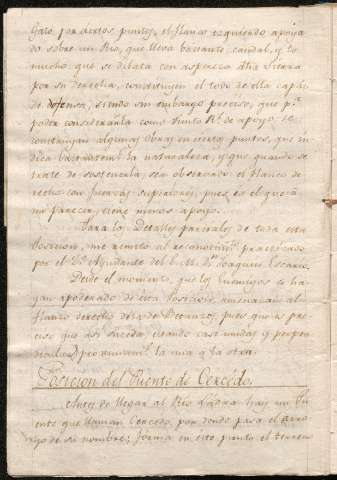 gato por ciertos puntos, el flanco izquierdo apoya
do sobre un Rio, que lleva bastante caudal, y lo
mucho que se dilata con aspereza dha Sierra
por su derecha, constituyen el todo de ella capáz
de defensa, siendo sin embargo preciso, que pª
poder considerarla como Punto de apoyo se
construyan algunas obras en ciertos puntos, que in
dica bastante la naturaleza, y que quando se
trate de sostenerla, sea observado el flanco de
recho con fuerzas superiores, pues es el que á
mi parecer, tiene menos apoyo.
Para los Detalles parciales de toda esta
Posicion, me remito al reconocimto practicado
por el 2º Ayudante del E. M. Dn Joaquin Escario.
Desde el momento, que los Enemigos se ha
yan apoderado de esta Posicion, amenazan al
flanco derecho de la de Betanzos, pues que es pre
ciso que asi suceda estando casi unidas y
proximamte la una á la otra.
Posicion del Puente de Cercédo.
Antes de llegar al Rio Ladra hay un Pu
ente que llaman Cercedo, por donde pasa el arro
yo de su nombre; forma en este punto el terreno